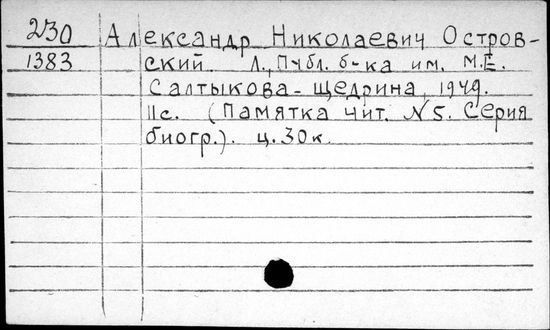 230 Александр Николаевич Остров-
1383 ский Л., Публ. б-ка им. М.Е.
Салтыкова-Щедрина, 1949.
11с. (Памятка чит. N 5. Серия
биогр.). ц. 30 к.